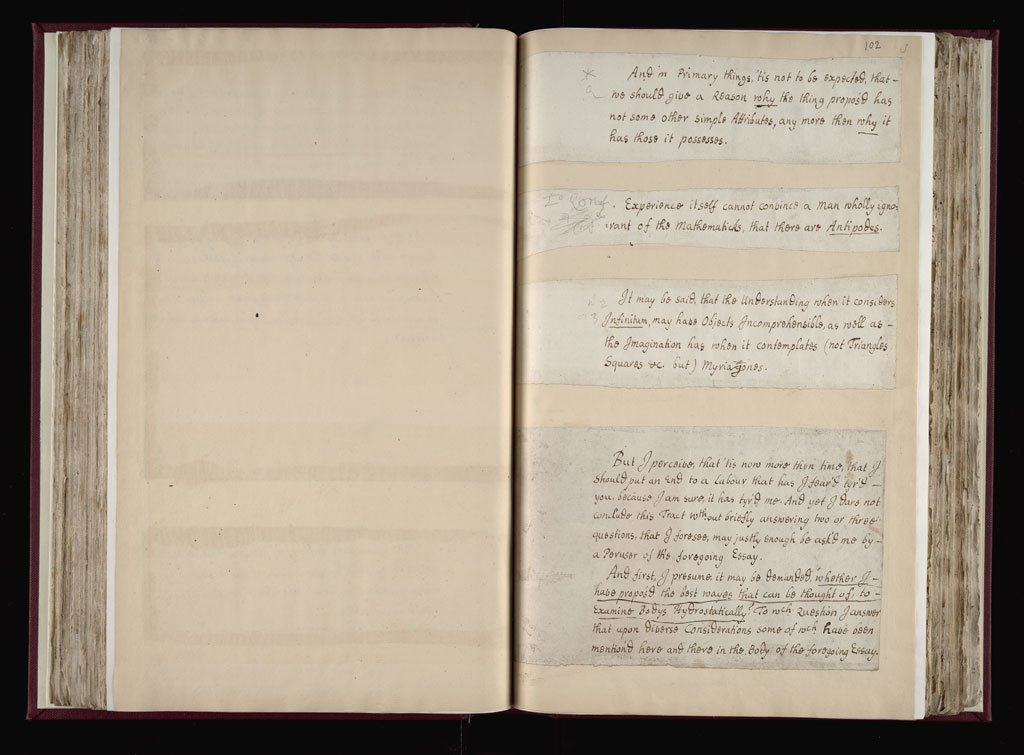 102
And in Primary things, 'tis not to be expected, that
we should give a Reason why the thing propos'd has
not some other simple Attributes, any more then why it
has those it possesses.
Experience itself cannot convince a Man wholly igno-
rant of the Mathematicks, that there are Antipodes.
It may be said, that the Understanding when it considers
Infinitum, may have Objects Incomprehensible, as well as
the Imagination has when it contemplates (not Triangles
Squares &c. but) Myriagones.
But I perceive, that 'tis now more then time, that I
should put an End to a Labour that has I fear'd tyr'd
you, because I am sure, it has tyr'd me. And yet I dare not
conclude this Tract without briefly answering two or three
questions, that I foresee, may justly enough be ask'd me by
a Peruser of the foregoing Essay.
And first, I presume, it may be demanded, whether I
have propos'd the best wayes that can be thought of, to
Examine Bodys Hydrostatically? To wch Question I answer
that upon diverse Considerations some of wch have been
mention'd here and there in the Body of the foregoing Essay.